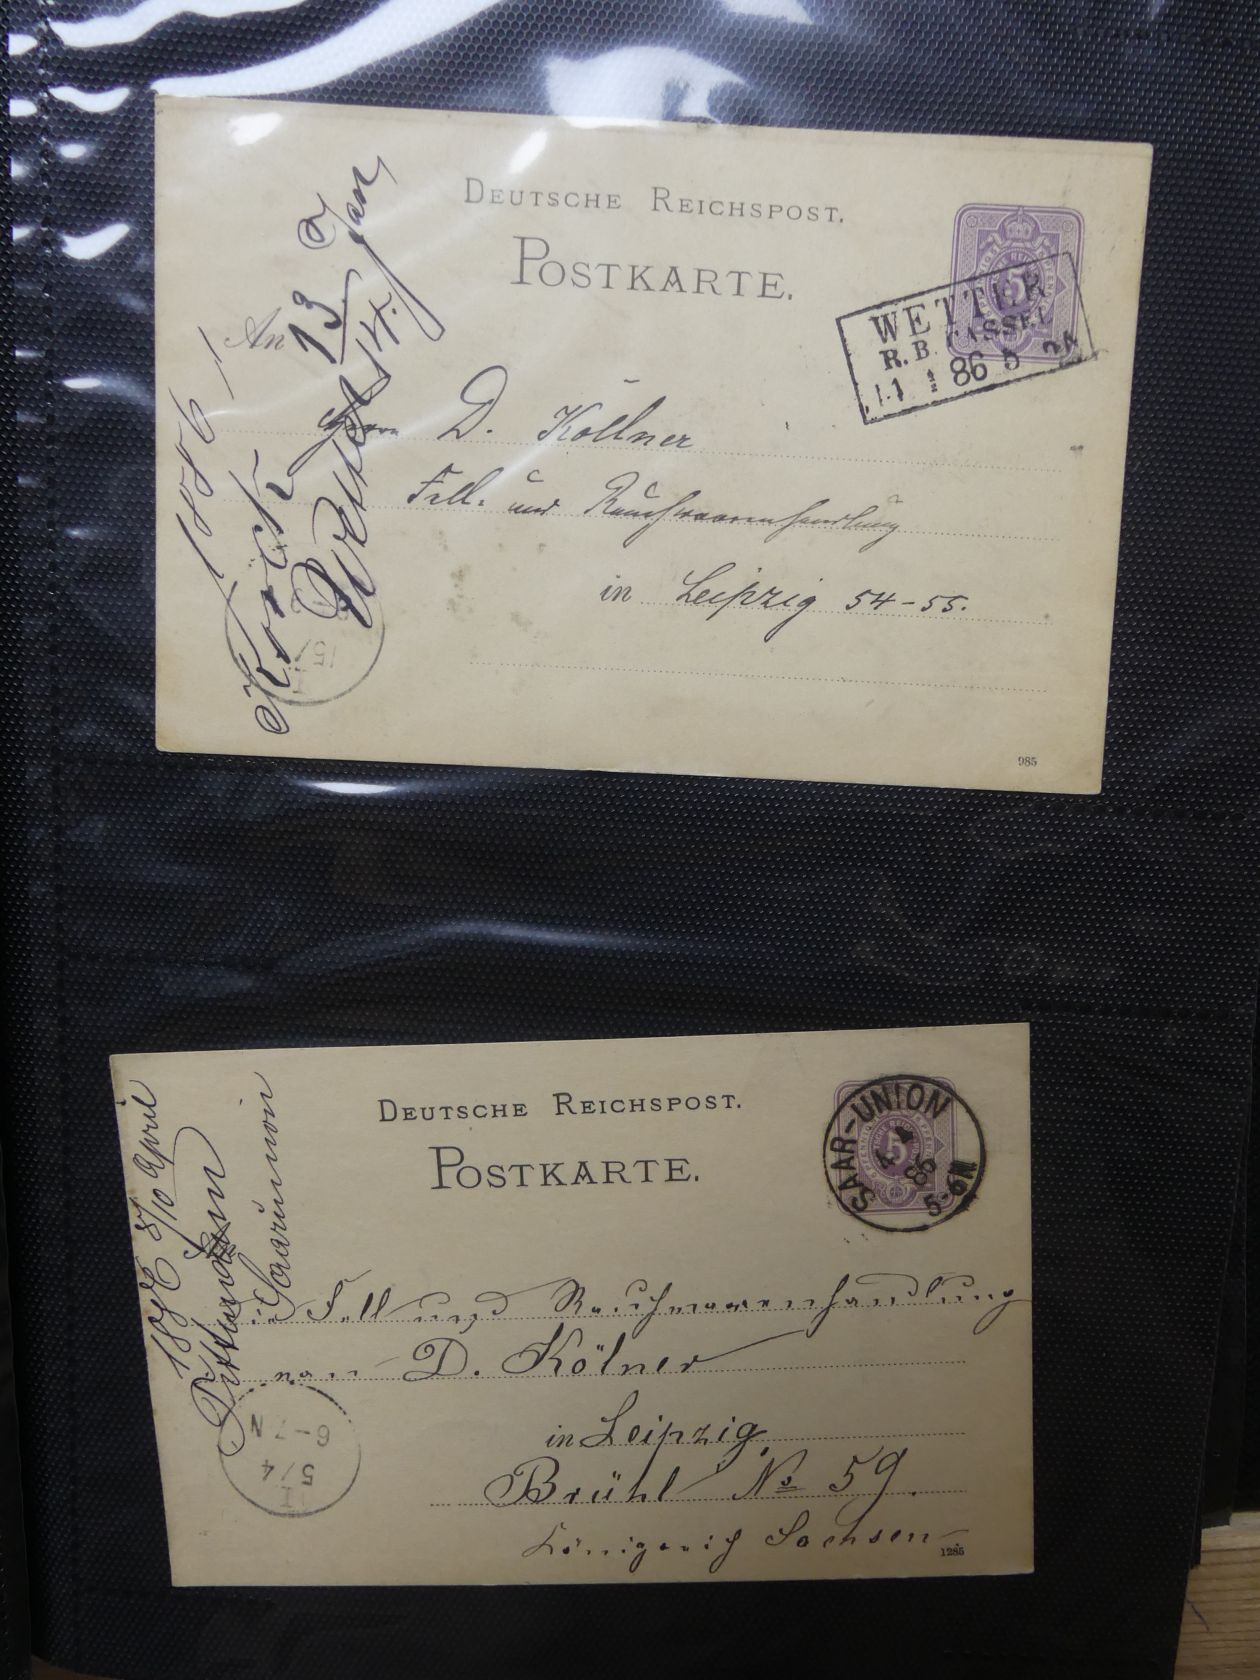 DEUTSCHE REICHSPOST.
POSTKARTE.
An
WETTER
R.B. CASSEL
86 5
13 Jan
1886
Herrn D. Köllner
Fell- und Rauchwaarenhandlung
in Leipzig 54-55.
15
985
DEUTSCHE REICHSPOST.
POSTKARTE.
SAAR-UNION
4 4
86
5-6N
5
1886 8/10 April
Saarunion
Fell und Rauchwaarenhandlung
von D. Kölner
in Leipzig
Brühl No 59.
Königreich Sachsen
6-7N
5/4
1285